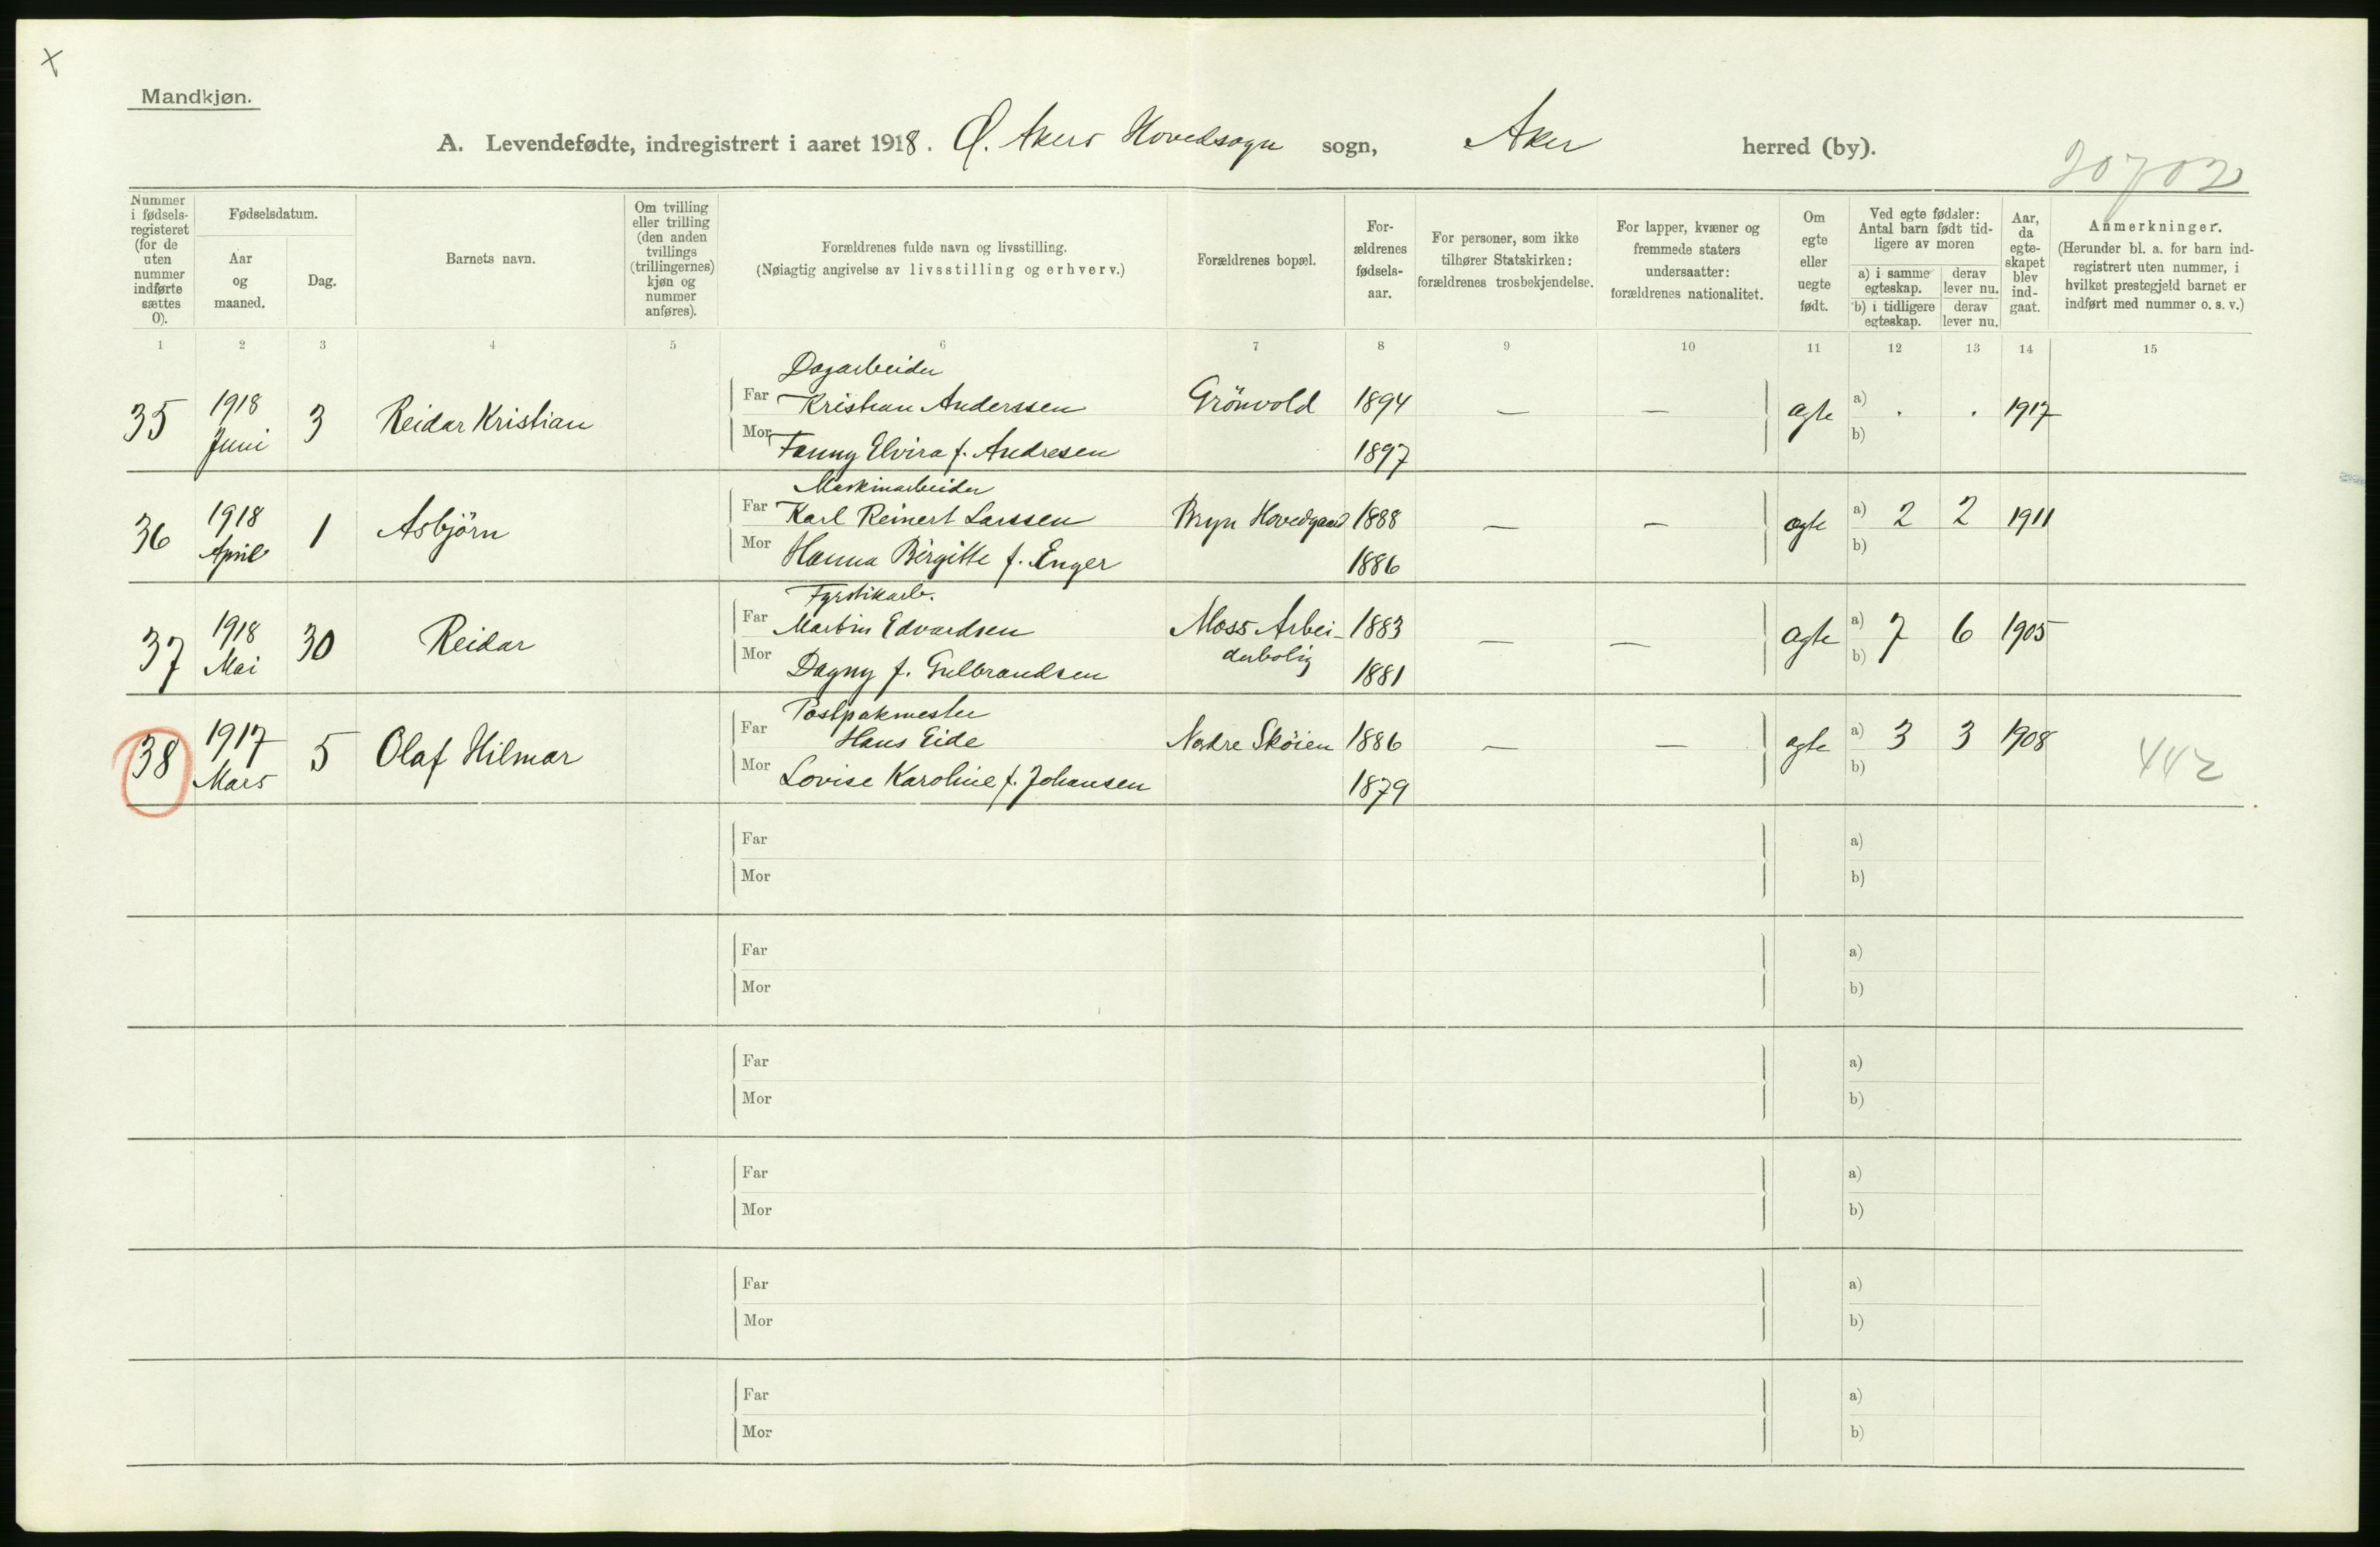 Mandkjøn.
A. Levendefødte, indregistrert i aaret 1918. Ø. Akers Hovedsogn sogn, Aker herred (by).
20702
Nummer i fødsels-registeret (for de uten nummer indførte sættes 0).
Fødselsdatum.
Aar og maaned.
Dag.
Barnets navn.
Om tvilling eller trilling (den anden tvillings (trillingernes) kjøn og nummer anføres).
Forældrenes fulde navn og livsstilling.
(Nøiagtig angivelse av livsstilling og erhverv.)
Forældrenes bopæl.
For-ældrenes fødsels-aar.
For personer, som ikke tilhører Statskirken: forældrenes trosbekjendelse.
For lapper, kvæner og fremmede staters undersaatter: forældrenes nationalitet.
Om egte eller uegte født.
Ved egte fødsler: Antal barn født tid-ligere av moren
a) i samme egteskap.
derav lever nu.
b) i tidligere egteskap.
derav lever nu.
Aar, da egte-skapet blev ind-gaat.
Anmerkninger.
(Herunder bl. a. for barn ind-registrert uten nummer, i hvilket prestegjeld barnet er indført med nummer o. s. v.)
1 2 3 4 5 6 7 8 9 10 11 12 13 14 15
Dagarbeider
35 1918 Juni 3 Reidar Kristian
Far Kristian Anderssen Grönvold 1894 — — egte a) . . 1917
Mor Fanny Elvira f. Andresen 1897 b)
Maskinarbeider
36 1918 April 1 Asbjörn
Far Karl Reinert Larssen Bryn Hovedgaard 1888 — — egte a) 2 2 1911
Mor Hanna Birgitte f. Enger 1886 b)
Fyrstikarb.
37 1918 Mai 30 Reidar
Far Martin Edvardsen Moss Arbei-derbolig 1883 — — egte a) 7 6 1905
Mor Dagny f. Gulbrandsen 1881 b)
Postpakmester
38 1917 Mars 5 Olaf Hilmar
Far Hans Eide Nedre Sköien 1886 — — egte a) 3 3 1908 442
Mor Lovise Karoline f. Johansen 1879 b)
Far a)
Mor b)
Far a)
Mor b)
Far a)
Mor b)
Far a)
Mor b)
Far a)
Mor b)
Far a)
Mor b)